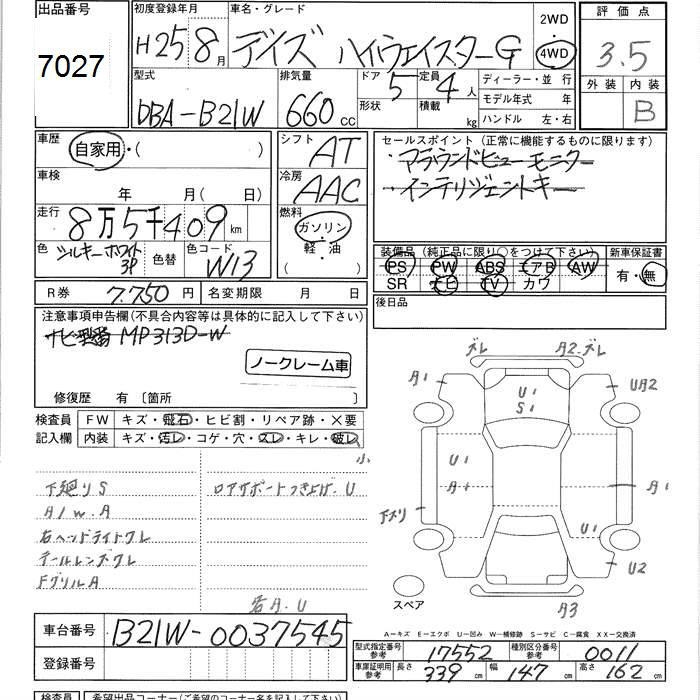 出品番号
7027
初度登録年月 車名・グレード
H25 8月 デイズ ハイウェイスターG
2WD
4WD
評価点
3.5
外装 内装
B
型式 排気量 ドア 定員
DBA-B21W 660cc 5 4人
形状 積載 kg
ディーラー・並行
モデル年式 年
ハンドル 左・右
車歴
自家用・( )
シフト
AT
車検
年 月(日)
冷房
AAC
走行
8万5千409km
燃料
ガソリン
軽・油
( )
色 シルキーホワイト3P 色替 色コード W13
セールスポイント(正常に機能するものに限ります)
・アラウンドビューモニター
・インテリジェントキー
装備品(純正品に限り○をつけて下さい) 新車保証書
PS PW ABS エアB AW
SR ナビ TV カワ
有・無
R券 7.750円 名変期限 月 日
後日品
注意事項申告欄(不具合内容等は具体的に記入して下さい)
ナビ型番 MP313D-W
ノークレーム車
修復歴 有〔箇所
検査員 FW キズ・飛石・ヒビ割・リペア跡・×要
記入欄 内装 キズ・汚レ・コゲ・穴・スレ・キレ・破レ
小
下廻りS
ロアサポートつき上げ.U
A/W.A
右ヘッドライトクレ
テールレンズクレ
FグリルA
若A.U
ズレ A2.ズレ
A1 UA2
U1
S1
U1
A1 A1
下ズリ
U1
U2
A3
スペア
A-キズ E-エクボ U-凹み W-補修跡 S-サビ C-腐食 XX-交換済
車台番号 B21W-0037545
登録番号
型式指定番号 参考 17552 種別区分番号 参考 0011
車庫証明用 参考 長さ 339cm 幅 147cm 高さ 162cm
検査員 希望出品コーナー(ご希望のコーナー名を記入して下